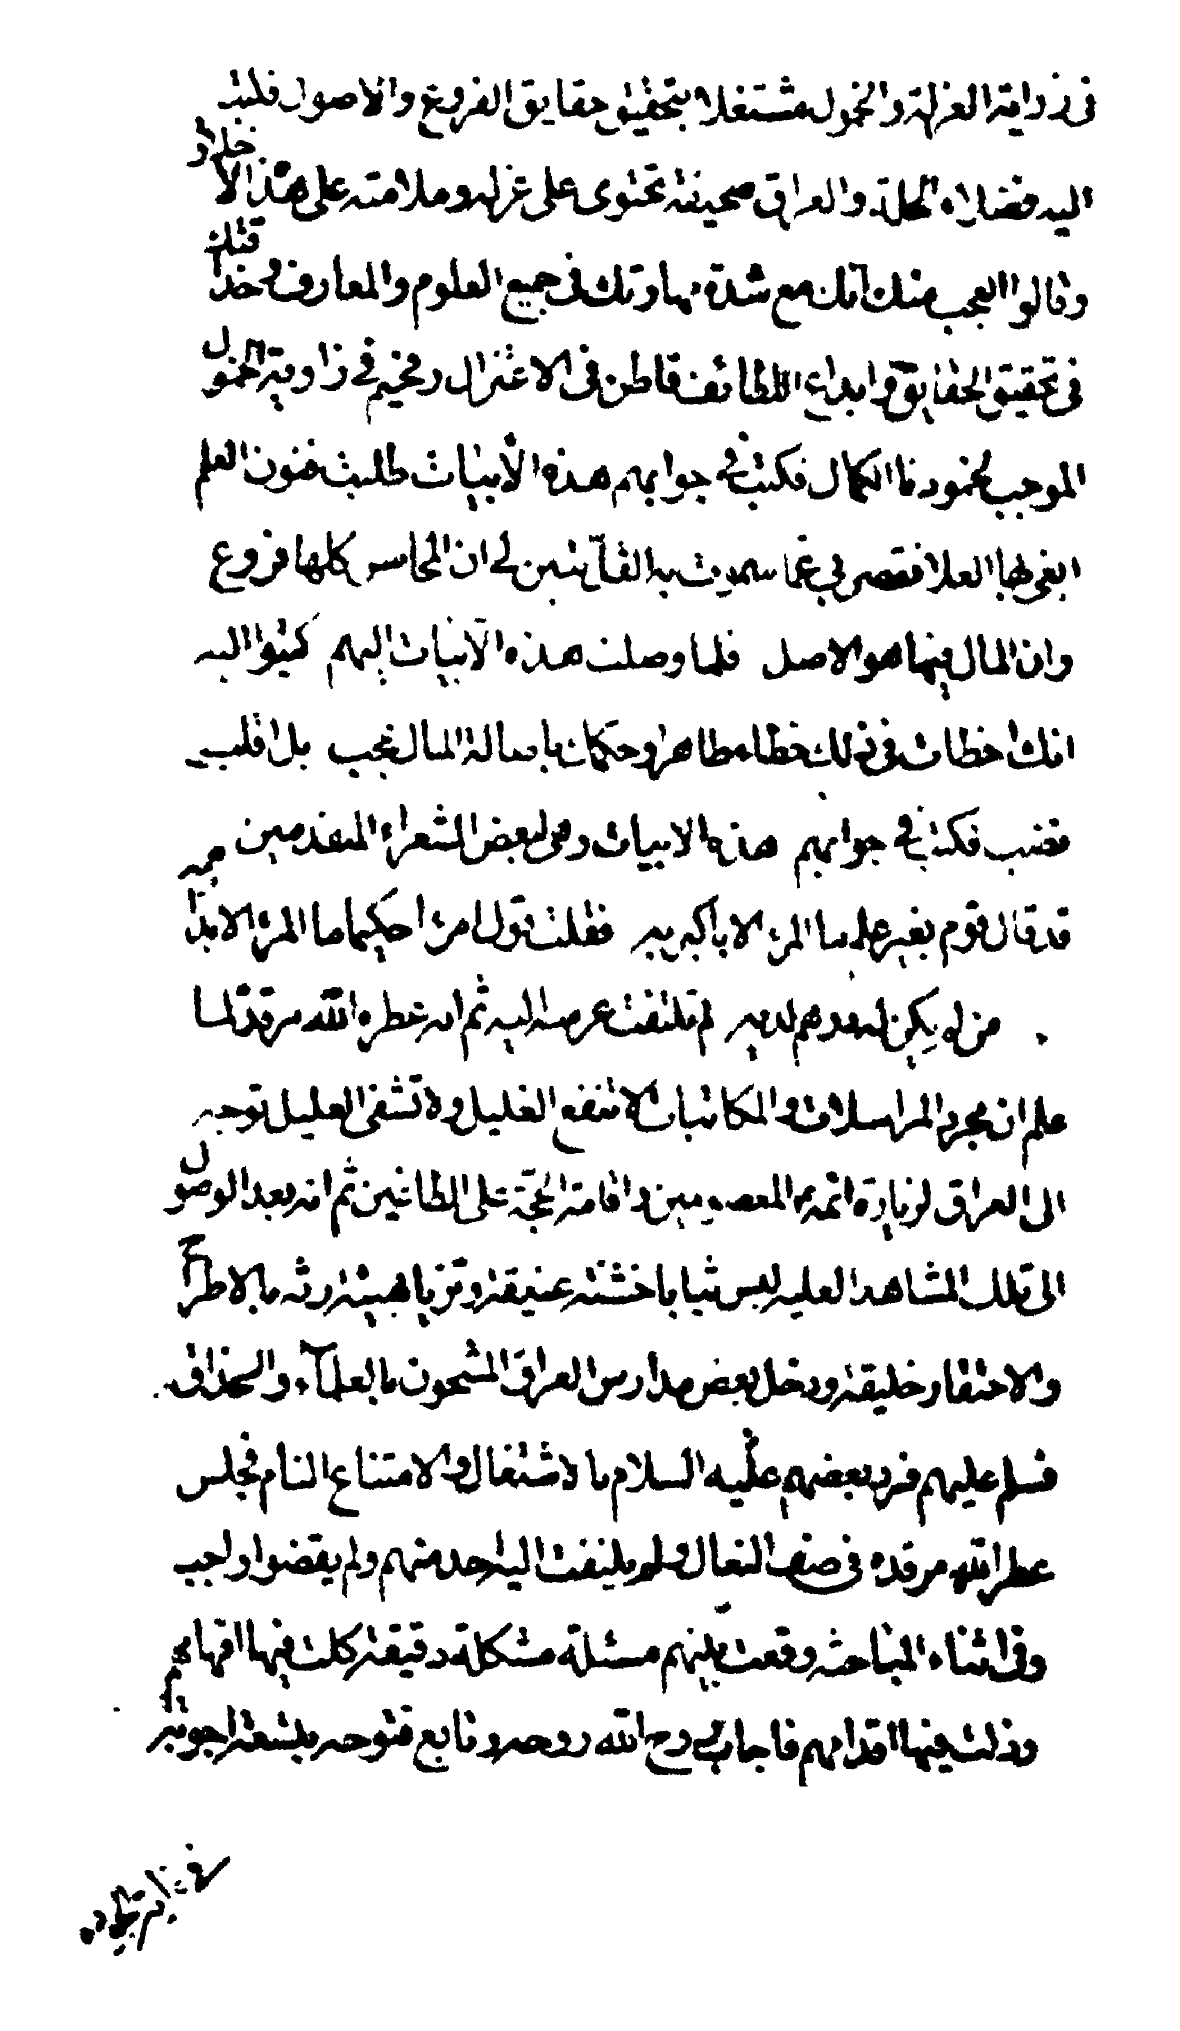 فى زاوية العزلة والخمول مشتغلا بتحقيق حقايق الفروع والاصول فكتب
اليه فضلاء الحلة والعراق صحيفة تحتوى على عزله وملامته على هذه الاخلاق
وقالوا العجب منك انك مع شدة مهارتك فى جميع العلوم والمعارف وحذاقتك
فى تحقيق الحقايق وابداع اللطائف قاطن فى الاعتزال ومخيم في زاوية الخمول
الموجب لخمود نار الكمال فكتب في جوابهم هذه الأبيات طلبت فنون العلم
ابغى بها العلا فقصر بي عما سموت به القل تبين لي ان المحاسن كلها فروع
وان المال فيها هو الاصل فلما وصلت هذه الأبيات اليهم كتبوا اليه
انك اخطات فى ذلك خطاء ظاهرا وحكمك باصالة المال عجب بل اقلب
تصب فكتب في جوابهم هذه الابيات وهى لبعض الشعراء المتقدمين
قد قال قوم بغير علم ما المرء الا باكبريه فقلت قول امرء حكيم ما المرء الا بدرهميه
من لم يكن له درهم لديه لم تلتفت عرسه اليه ثم انه عطر الله مرقده لما
علم ان مجرد المراسلات والمكاتبات لا تنفع الغليل ولا تشفى العليل توجه
الى العراق لزيارة ائمة المعصومين واقامة الحجة على الطاغين ثم انه بعد الوصول
الى تلك المشاهد العلية لبس ثيابا خشنة عتيقة وتزيا بهيئة رثة بالاطراح
والاحتقار خليقة ودخل بعض مدارس العراق المشحون بالعلمآء والحذاق
فسلم عليهم فرد بعضهم عليه السلام بالاشتغال والامتناع التام فجلس
عطر الله مرقده فى صف النعال ولم يلتفت اليه احد منهم ولم يقضوا واجب
وفى اثناء المباحثة وقعت بينهم مسئلة مشكلة دقيقة كلت فيها افهامهم
وزلت فيها اقدامهم فاجاب روح الله روحه وتابع فتوحه بتسعة اجوبة